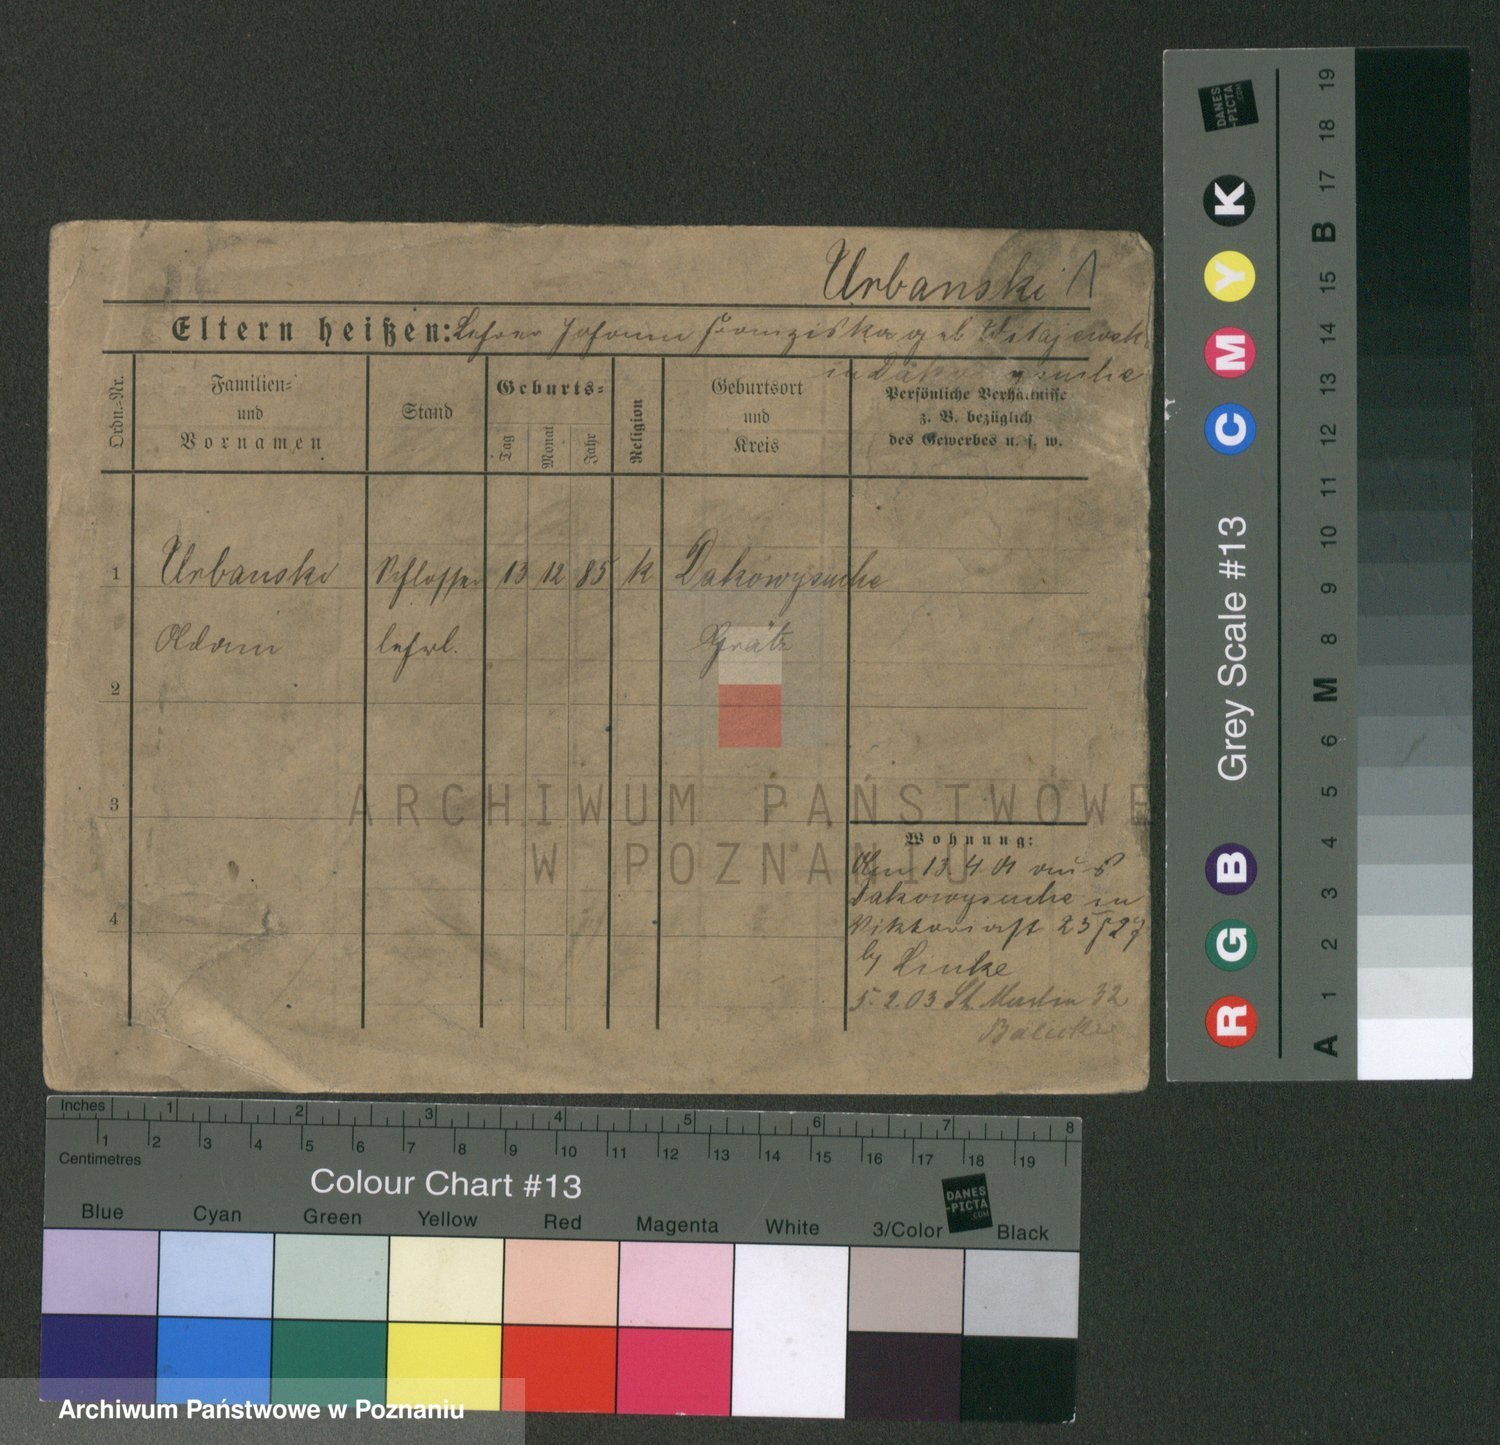 Urbanski A
Eltern heißen: Lehrer Johann Franziska geb
in ysuche
Ordn.-Nr.
Familien-
und
Vornamen
Stand
Geburts-
Tag
Monat
Jahr
Religion
Geburtsort
und
Kreis
Persönliche Verhältnisse
z. B. bezüglich
des Gewerbes u. s. w.
1 Urbanski Schlosser 13 12 85 k Dakowysuche
Adam lehrl. Grätz
2
3
4
Wohnung:
Am 13.4.01 aus
Dakowysuche in
Viktoriast 25/27
by Linke
5.2.03 St Martin 32
ARCHIWUM PAŃSTWOWE
W POZNANIU
Inches 1 2 3 4 5 6 7 8
1 2 3 4 5 6 7 8 9 10 11 12 13 14 15 16 17 18 19
Centimetres
Colour Chart #13
DANES
-PICTA
.COM
Blue Cyan Green Yellow Red Magenta White 3/Color Black
Archiwum Państwowe w Poznaniu
DANES
-PICTA
.COM
R G B Grey Scale #13 C M Y K
A 1 2 3 4 5 6 M 8 9 10 11 12 13 14 15 B 17 18 19